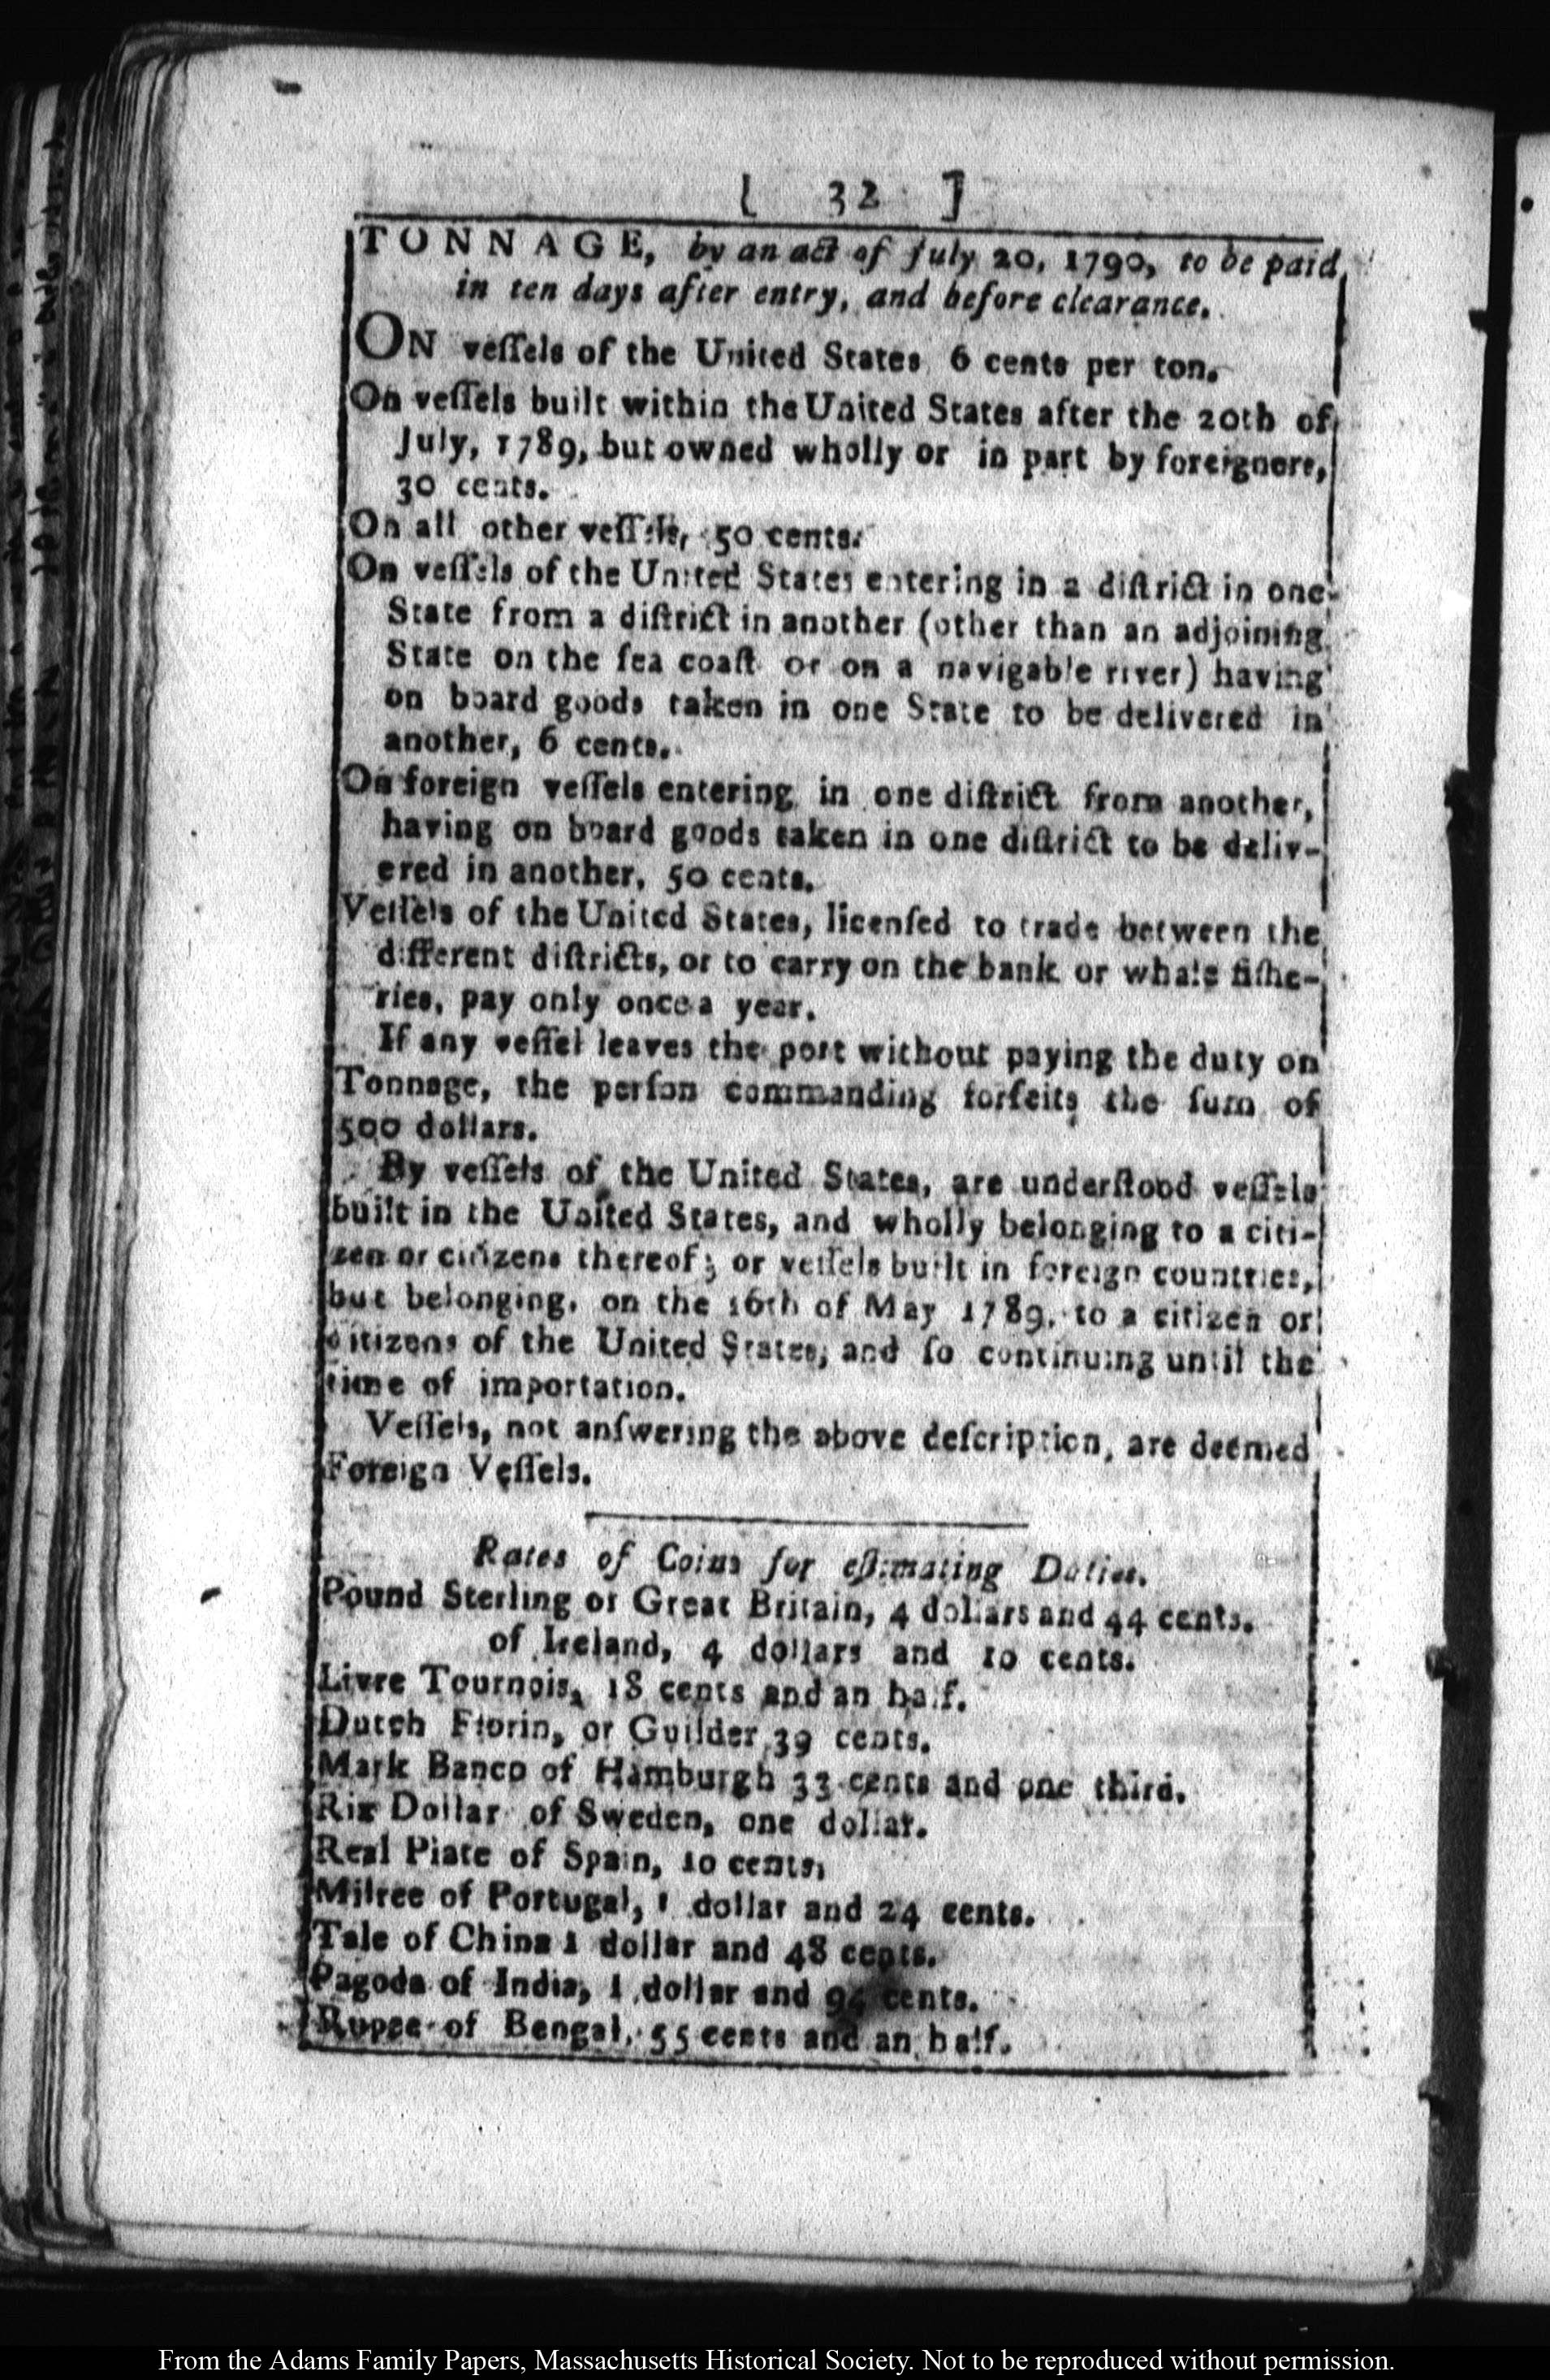 [ 32 ]
TONNAGE, by an act of July 20, 1790, to be paid
in ten days after entry, and before clearance.
ON veſſels of the United States 6 cents per ton.
On veſſels built within the United States after the 20th of
July, 1789, but owned wholly or in part by foreigners,
30 cents.
On all other veſſels, 50 cents.
On veſſels of the United States entering in a diſtrict in one
State from a diſtrict in another (other than an adjoining
State on the ſea coaſt or on a navigable river) having
on board goods taken in one State to be delivered in
another, 6 cents.
On foreign veſſels entering in one diſtrict from another,
having on board goods taken in one diſtrict to be deliv-
ered in another, 50 cents.
Veſſels of the United States, licenſed to trade between the
different diſtricts, or to carry on the bank or whale fiſhe-
ries, pay only once a year.
If any veſſel leaves the port without paying the duty on
Tonnage, the perſon commanding forfeits the ſum of
500 dollars.
By veſſels of the United States, are underſtood veſſels
built in the United States, and wholly belonging to a citi-
zen or citizens thereof; or veſſels built in foreign countries,
but belonging, on the 16th of May 1789, to a citizen or
citizens of the United States, and ſo continuing until the
time of importation.
Veſſels, not anſwering the above deſcription, are deemed
Foreign Veſſels.
Rates of Coins for eſtimating Duties.
Pound Sterling of Great Britain, 4 dollars and 44 cents.
of Ireland, 4 dollars and 10 cents.
Livre Tournois, 18 cents and an half.
Dutch Florin, or Guilder 39 cents.
Mark Banco of Hamburgh 33 cents and one third.
Rix Dollar of Sweden, one dollar.
Real Plate of Spain, 10 cents,
Milree of Portugal, 1 dollar and 24 cents.
Tale of China 1 dollar and 48 cents.
Pagoda of India, 1 dollar and 94 cents.
Rupee of Bengal, 55 cents and an half.
From the Adams Family Papers, Massachusetts Historical Society. Not to be reproduced without permission.